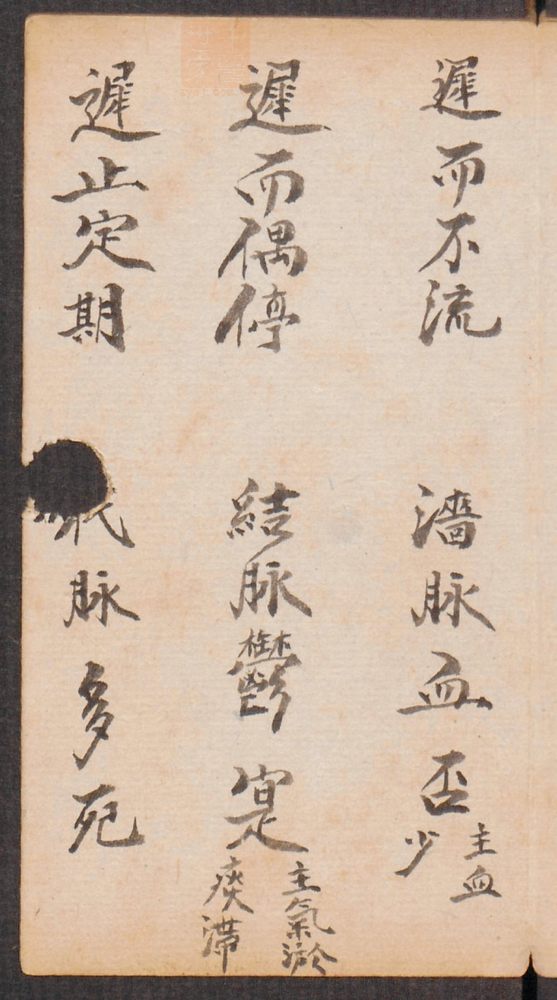 遲而不流 濇脉血否 主血少
遲而偶停 結脉鬱寔 主氣淤痰滯
遲止定期 脉多死